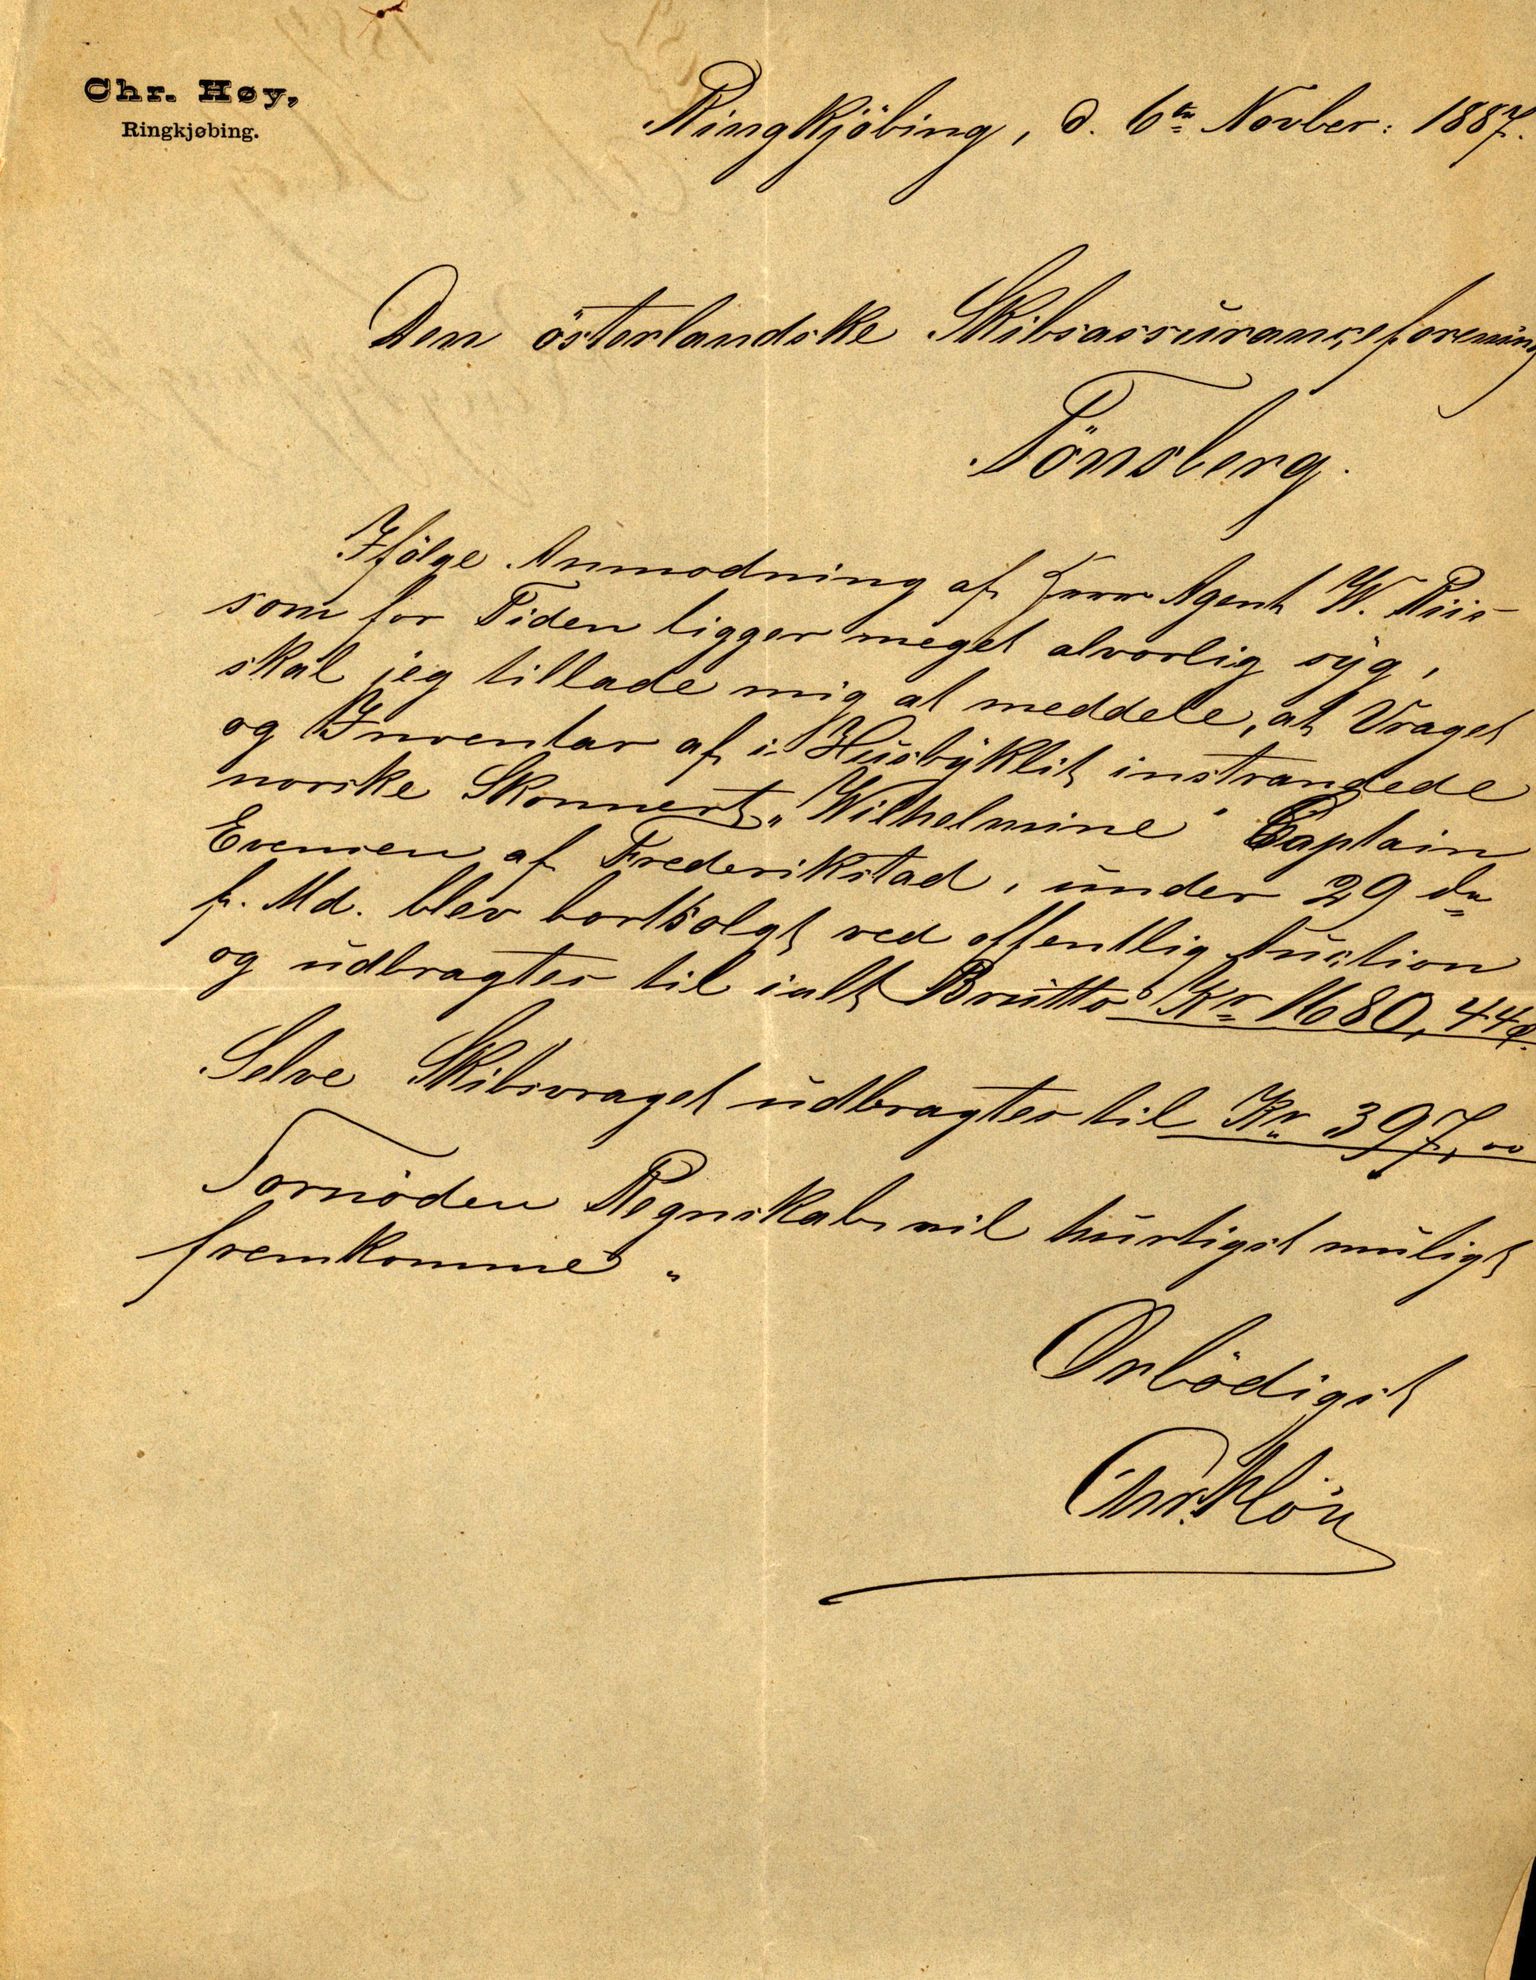 Chr. Høy,
Ringkjøbing.
Ringkjöbing, d. 6te Novber: 1887.
Den österlandske Skibsassuranceforening
Tönsberg.
Ifölge Anmodning af Herr Agent W. Riis
som for Tiden ligger meget alvorlig syg,
skal jeg tillade mig at meddele, at Vraget
og Inventar af i Husbyklit instrandede
norske Skonnert „Wilhelmine" Captain
Evensen af Frederikstad, under 29 dn
f. Md. blev bortsolgt ved offentlig Auction
og udbragtes til ialt Brutto Kr 1680,44
Selve Skibsvraget udbragtes til Kr 397,00
Fornöden Regnskab vil hurtigst muligt
fremkomme
Ærbödigst
Chr. Höy